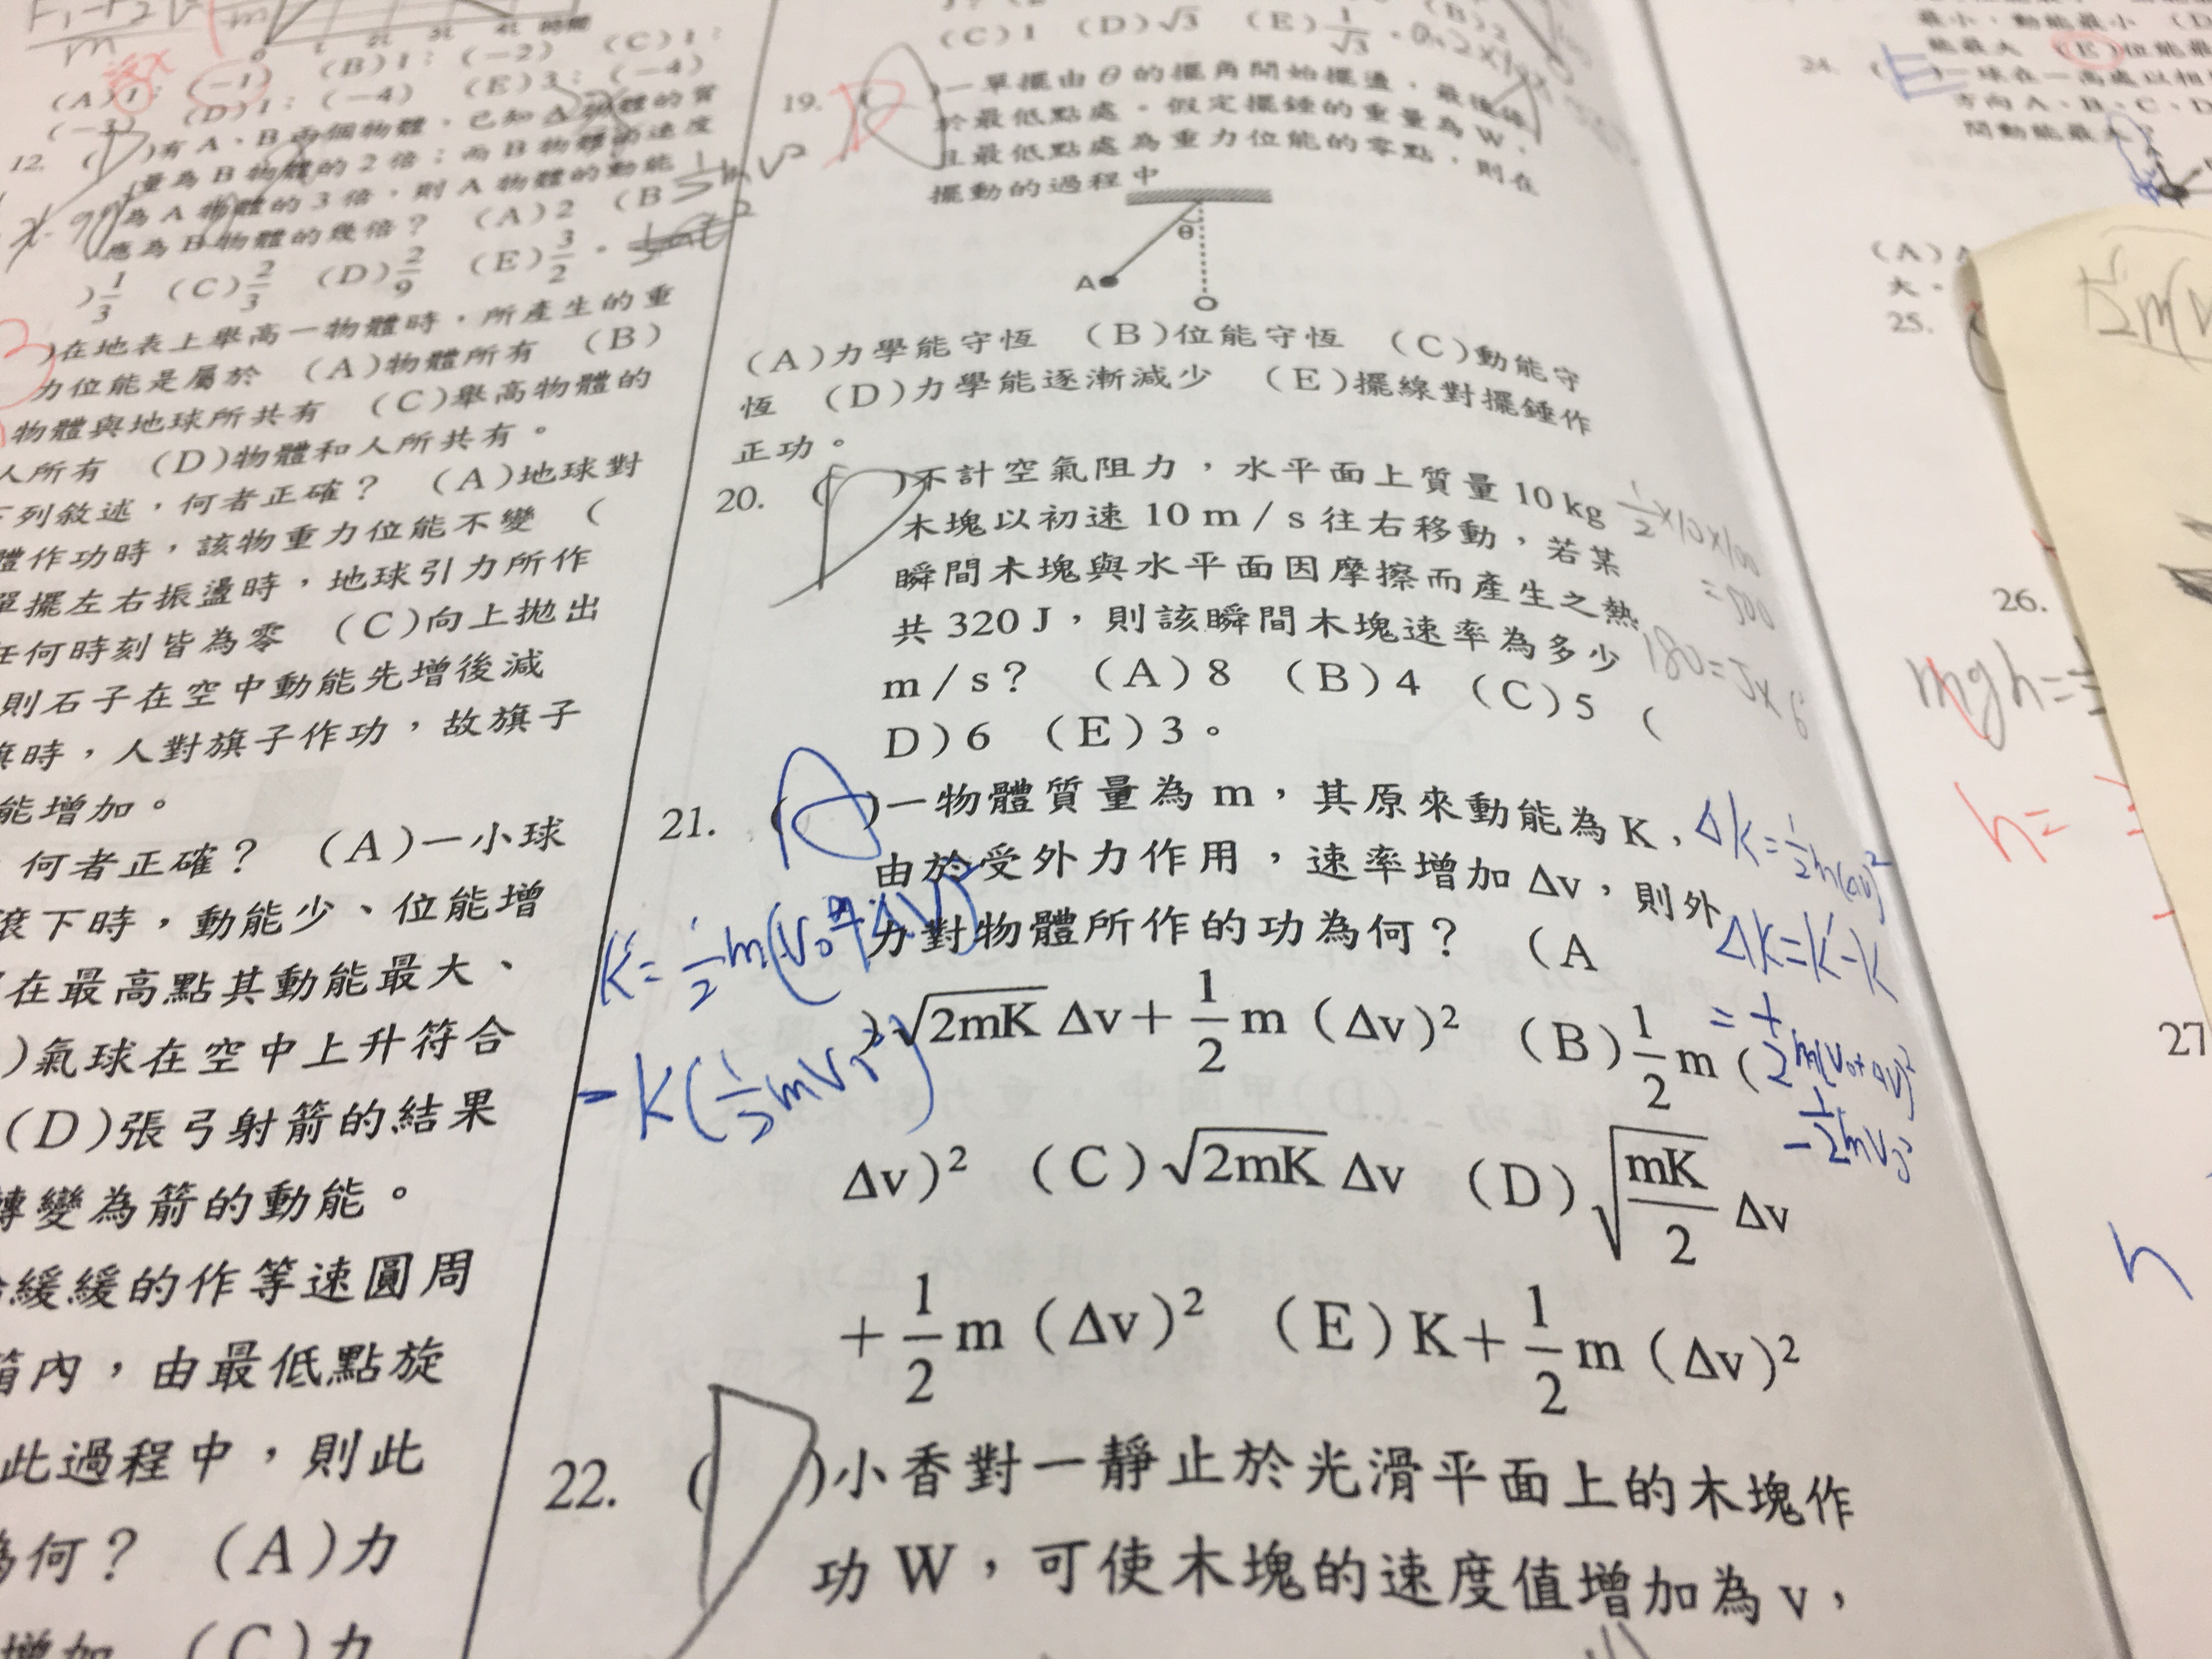 (A)1：(-1) (B)1：(-2) (C)1：
(-3) (D)1：(-4) (E)3：(-4)
12. ( D )有 A、B 兩個物體，已知 A 物體的質
量為 B 物體的 2 倍；而 B 物體的速度
為 A 物體的 3 倍，則 A 物體的動能
應為 B 物體的幾倍？ (A)2 (B
)1/3 (C)2/3 (D)2/9 (E)3/2。
)在地表上舉高一物體時，所產生的重
力位能是屬於 (A)物體所有 (B)
物體與地球所共有 (C)舉高物體的
人所有 (D)物體和人所共有。
下列敘述，何者正確？ (A)地球對
體作功時，該物重力位能不變 (
單擺左右振盪時，地球引力所作
任何時刻皆為零 (C)向上拋出
則石子在空中動能先增後減
旗時，人對旗子作功，故旗子
能增加。
何者正確？ (A)一小球
滾下時，動能少、位能增
在最高點其動能最大、
)氣球在空中上升符合
(D)張弓射箭的結果
轉變為箭的動能。
緩緩的作等速圓周
箱內，由最低點旋
此過程中，則此
為何？ (A)力
增加 (C)力
(C)1 (D)√3 (E)1/√3。
19. ( D )一單擺由 θ 的擺角開始擺盪，最後停
於最低點處。假定擺錘的重量為 W，
且最低點處為重力位能的零點，則在
擺動的過程中
θ
A
O
(A)力學能守恆 (B)位能守恆 (C)動能守
恆 (D)力學能逐漸減少 (E)擺線對擺錘作
正功。
20. ( D )不計空氣阻力，水平面上質量 10 kg
木塊以初速 10 m / s 往右移動，若某
瞬間木塊與水平面因摩擦而產生之熱
共 320 J，則該瞬間木塊速率為多少
m / s？ (A)8 (B)4 (C)5 (
D)6 (E)3。
1/2×10×100
=500
180=5×6
21. ( A )一物體質量為 m，其原來動能為 K，
由於受外力作用，速率增加 Δv，則外
力對物體所作的功為何？ (A
)√2mK Δv＋1/2 m (Δv)² (B)1/2 m (
Δv)² (C)√2mK Δv (D)√(mK/2) Δv
＋1/2 m (Δv)² (E)K＋1/2 m (Δv)²
K'=1/2 m(V₀+ΔV)²
-K(1/2 mV₀²)
ΔK=1/2 m(ΔV)²
ΔK=K'-K
=1/2 m(V₀+ΔV)²
-1/2 mV₀²
22. ( D )小香對一靜止於光滑平面上的木塊作
功 W，可使木塊的速度值增加為 v，
最小，動能最小 (D
能最大 (E)位能最
24. ( E )一球在一高處以相
方向 A、B、C、D
間動能最大？
(A) A
大。
25.
26.
mgh=
h=
27
h